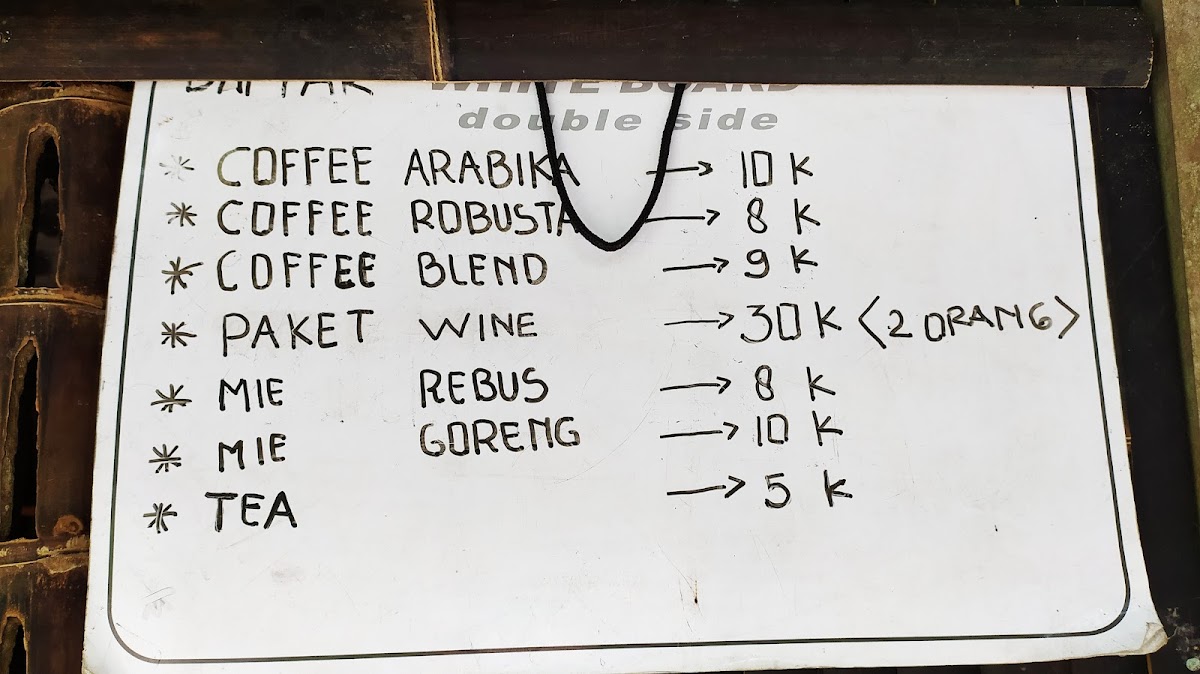 DAFTAR WHITE BOARD
double side
* COFFEE ARABIKA → 10 K
* COFFEE ROBUSTA → 8 K
* COFFEE BLEND → 9 K
* PAKET WINE → 30 K <2 ORANG>
* MIE REBUS → 8 K
* MIE GORENG → 10 K
* TEA → 5 K